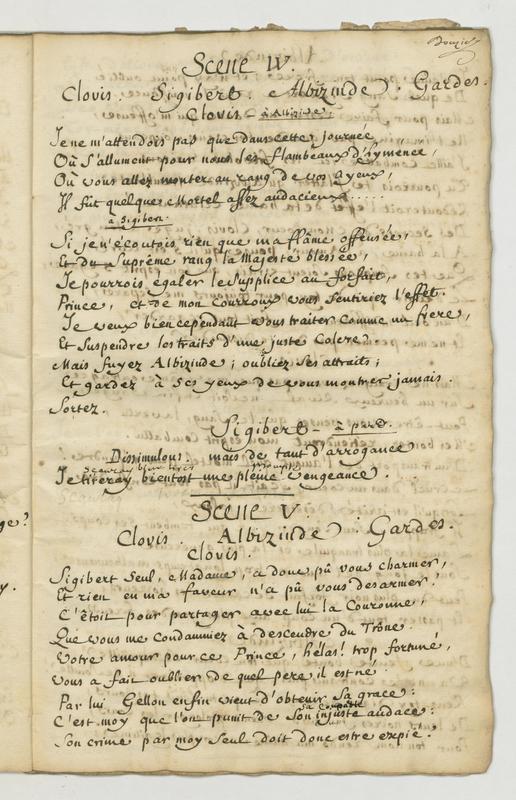 Scene IV.
Clovis. Sigibert. Albizinde. Gardes.
Clovis à Albizinde.
Je ne m'attendois pas que dans cette journée
Où s'allument pour nous les flambeaux d'hymenée,
Où vous allez monter au rang de nos ayeux,
Il fût quelque Mortel assez audacieux......
à Sigibert.
Si je n'écoutois rien que ma flâme offensée,
Et du Suprême rang la Majesté blessée,
Je pourrois égaler le Supplice au forfait,
Prince, et de mon Courroux vous Sentiriez l'effet.
Je veux bien cependant vous traiter comme un frere,
Et Suspendre les traits d'une juste Colere.
Mais fuyez Albizinde; oubliez Ses attraits;
Et gardez à Ses yeux de vous montrer jamais.
Sortez.
Sigibert à part.
Dissimulons. mais de tant d'arrogance
Sçauray bien tirer prompte
Je tireray bientost une pleine vengeance.
Scene V.
Clovis. Albizinde. Gardes.
Clovis.
Sigibert Seul, Madame, a donc pû vous charmer,
Et rien en ma faveur n'a pû vous desarmer!
C'êtoit pour partager avec lui la Couronne,
Que vous me Condamniez à descendre du Trône.
Votre amour pour ce Prince, hélas! trop fortuné,
Vous a fait oublier de quel pere il est né.
Par lui Gellon enfin vient d'obtenir Sa grace:
Sa Coupable
C'est moy que l'on punit de Son injuste audace:
Son crime par moy Seul doit donc estre expié.
ge?
y.